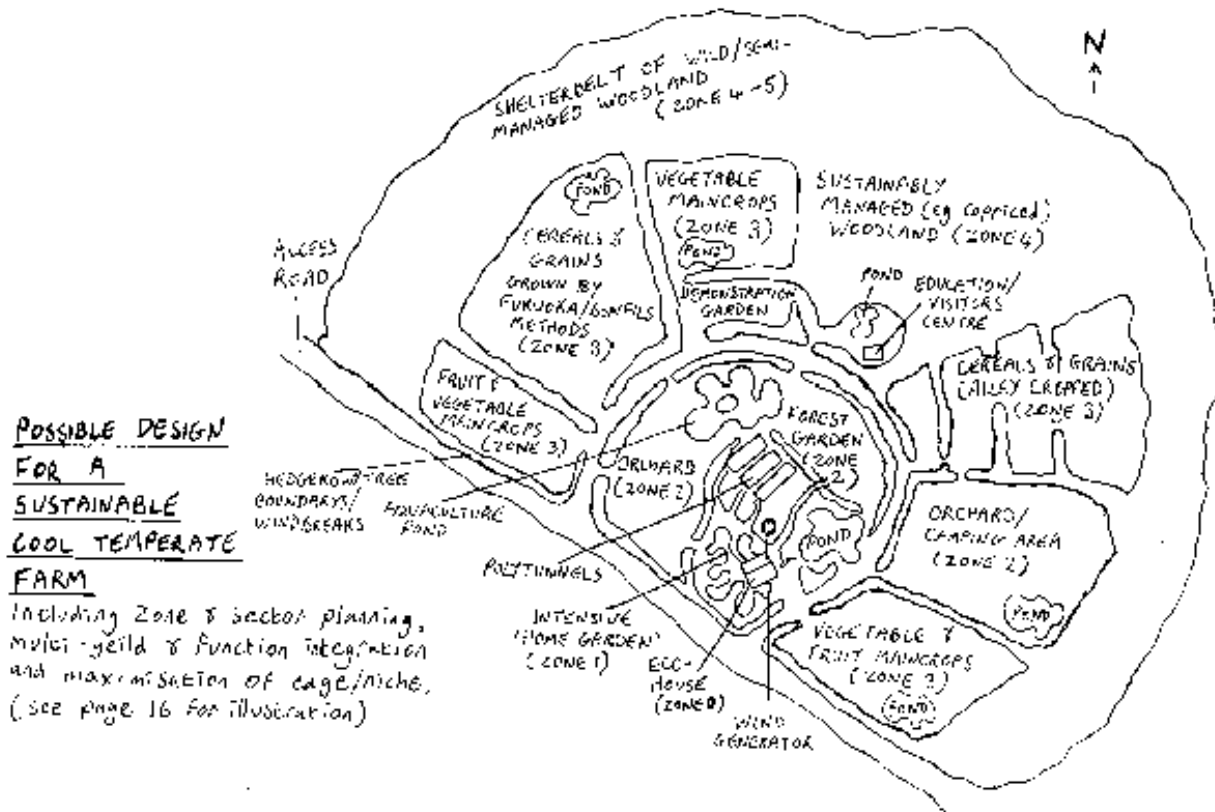 N
SHELTERBELT OF WILD/SEMI-
MANAGED WOODLAND
(ZONE 4-5)
POND
CEREALS &
GRAINS
GROWN BY
FUKUOKA/BONFILS
METHODS
(ZONE 3)
VEGETABLE
MAINCROPS
(ZONE 3)
POND
SUSTAINABLY
MANAGED (eg coppiced)
WOODLAND (ZONE 4)
ACCESS
ROAD
DEMONSTRATION
GARDEN
POND
EDUCATION/
VISITORS
CENTRE
CEREALS & GRAINS
(ALLEY CROPPED)
(ZONE 3)
FRUIT &
VEGETABLE
MAINCROPS
(ZONE 3)
FOREST
GARDEN
(ZONE
2)
ORCHARD
(ZONE 2)
HEDGEROW/TREE
BOUNDARYS/
WINDBREAKS
AQUACULTURE
POND
POLYTUNNELS
POND
ORCHARD/
CAMPING AREA
(ZONE 2)
POND
INTENSIVE
'HOME GARDEN'
(ZONE 1)
ECO-
HOUSE
(ZONE 0)
WIND
GENERATOR
VEGETABLE &
FRUIT MAINCROPS
(ZONE 3)
POND
POSSIBLE DESIGN
FOR A
SUSTAINABLE
COOL TEMPERATE
FARM
Including Zone & Sector planning,
multi-yeild & function integration
and maximisation of edge/niche.
(see page 16 for illustration)